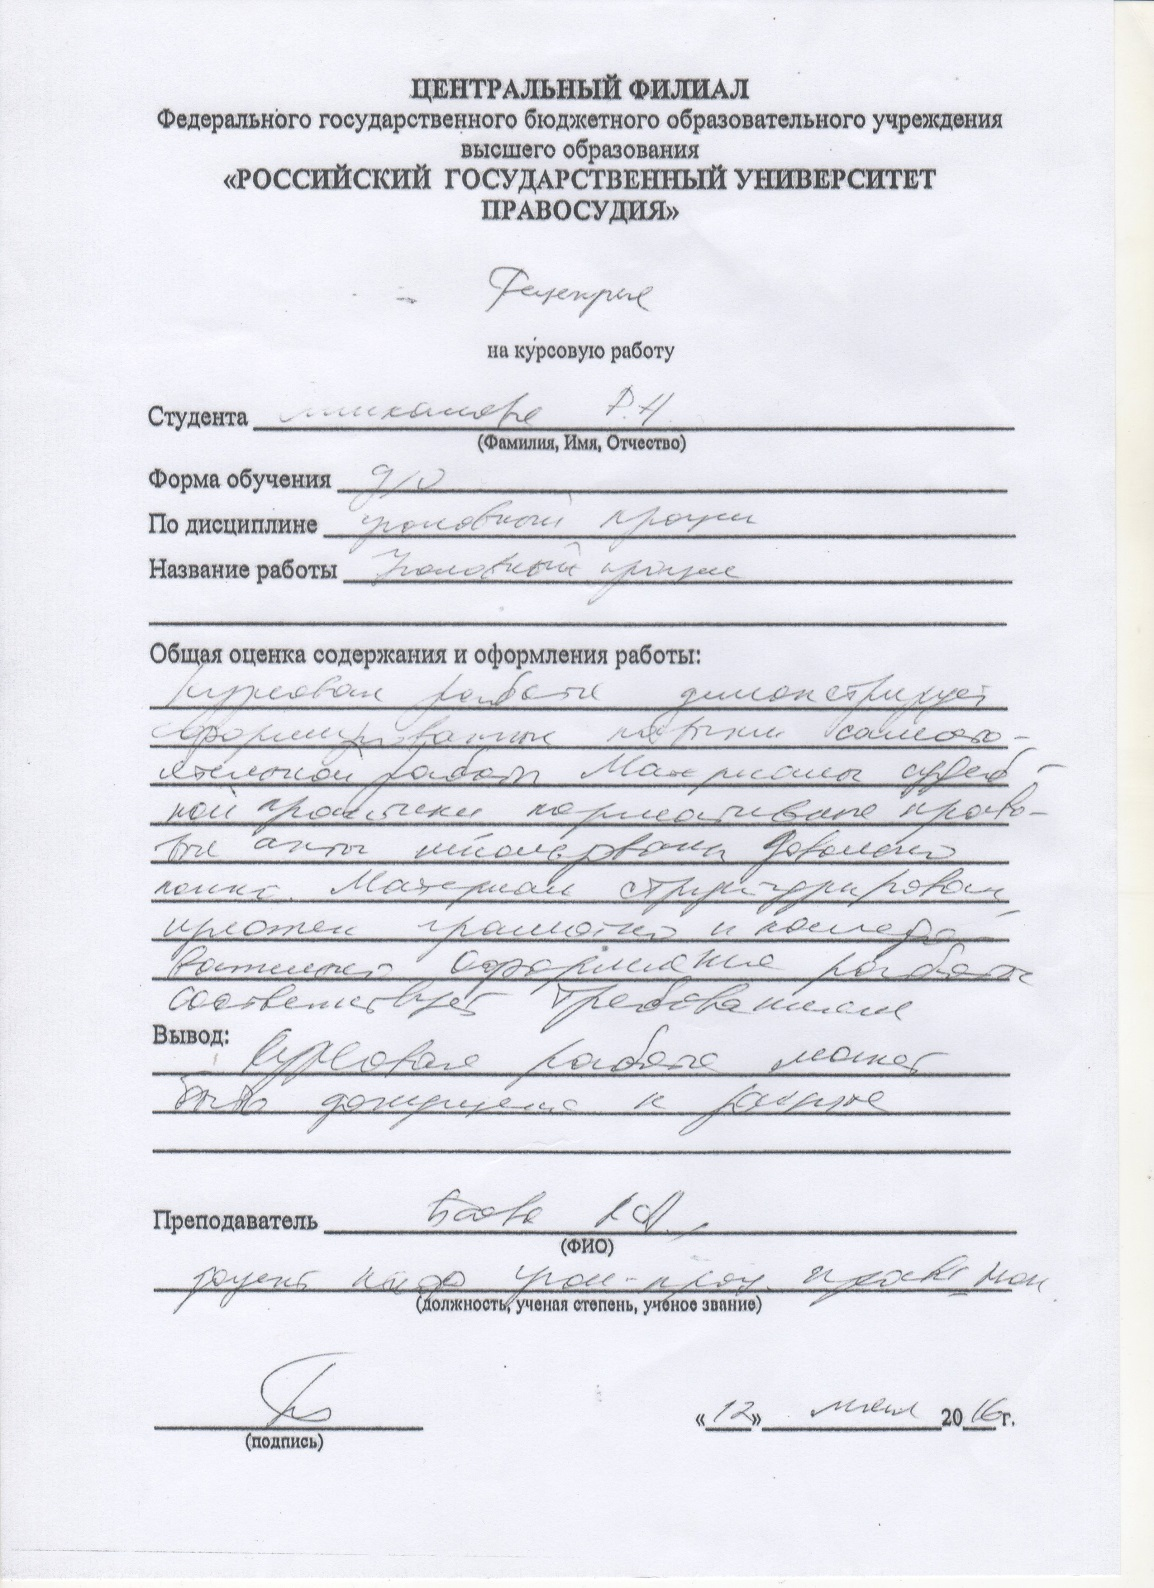 ЦЕНТРАЛЬНЫЙ ФИЛИАЛ
Федерального государственного бюджетного образовательного учреждения
высшего образования
«РОССИЙСКИЙ ГОСУДАРСТВЕННЫЙ УНИВЕРСИТЕТ
ПРАВОСУДИЯ»
Рецензия
на курсовую работу
Студента Р.Н.
(Фамилия, Имя, Отчество)
Форма обучения д/о
По дисциплине уголовный процесс
Название работы Уголовный процесс
Общая оценка содержания и оформления работы:
Курсовая работа демонстрирует
сформированные навыки самосто-
ятельной работы Материалы судеб-
ной практики нормативные право-
вые акты использованы довольно
полно. Материал структурирован
изложен грамотно и последо-
вательно Оформление работы
соответствует требованиям
Вывод:
Курсовая работа может
быть допущена к защите
Преподаватель
(ФИО)
доцент каф угол-проц. права
(должность, ученая степень, ученое звание)
(подпись)
«12» мая 2016г.